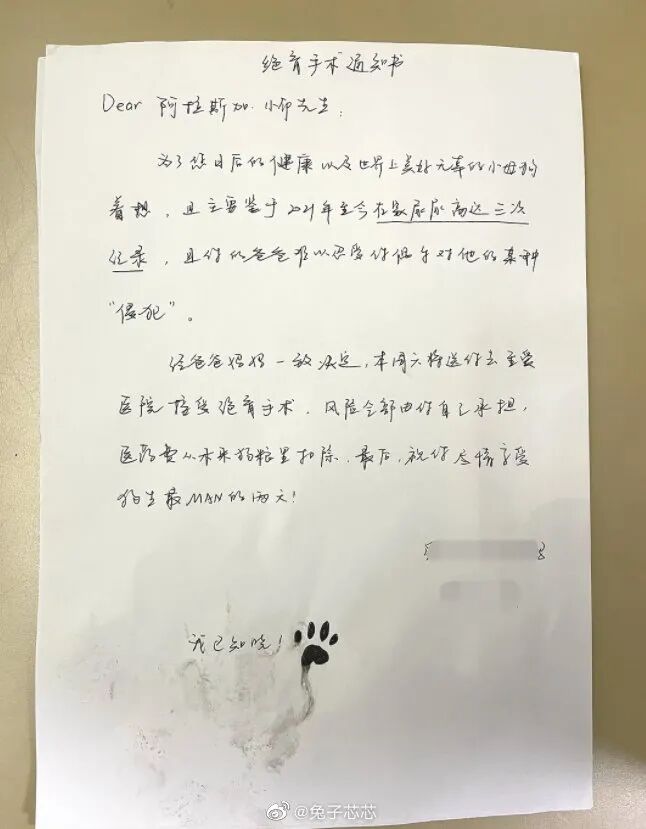 绝育手术通知书
Dear 阿拉斯加·小帅先生:
为了您日后的健康以及世界上美好无辜的小母狗
着想,且主要鉴于2021年至今在家尿尿高达三次
纪录,且你的爸爸难以忍受你偶尔对他的某种
“侵犯”。
经爸爸妈妈一致决定,本周六将送你去至爱
医院接受绝育手术,风险全部由你自己承担,
医药费从未来狗粮里扣除,最后,祝你尽情享受
狗生最MAN的两天!
我已知晓!
@兔子芯芯